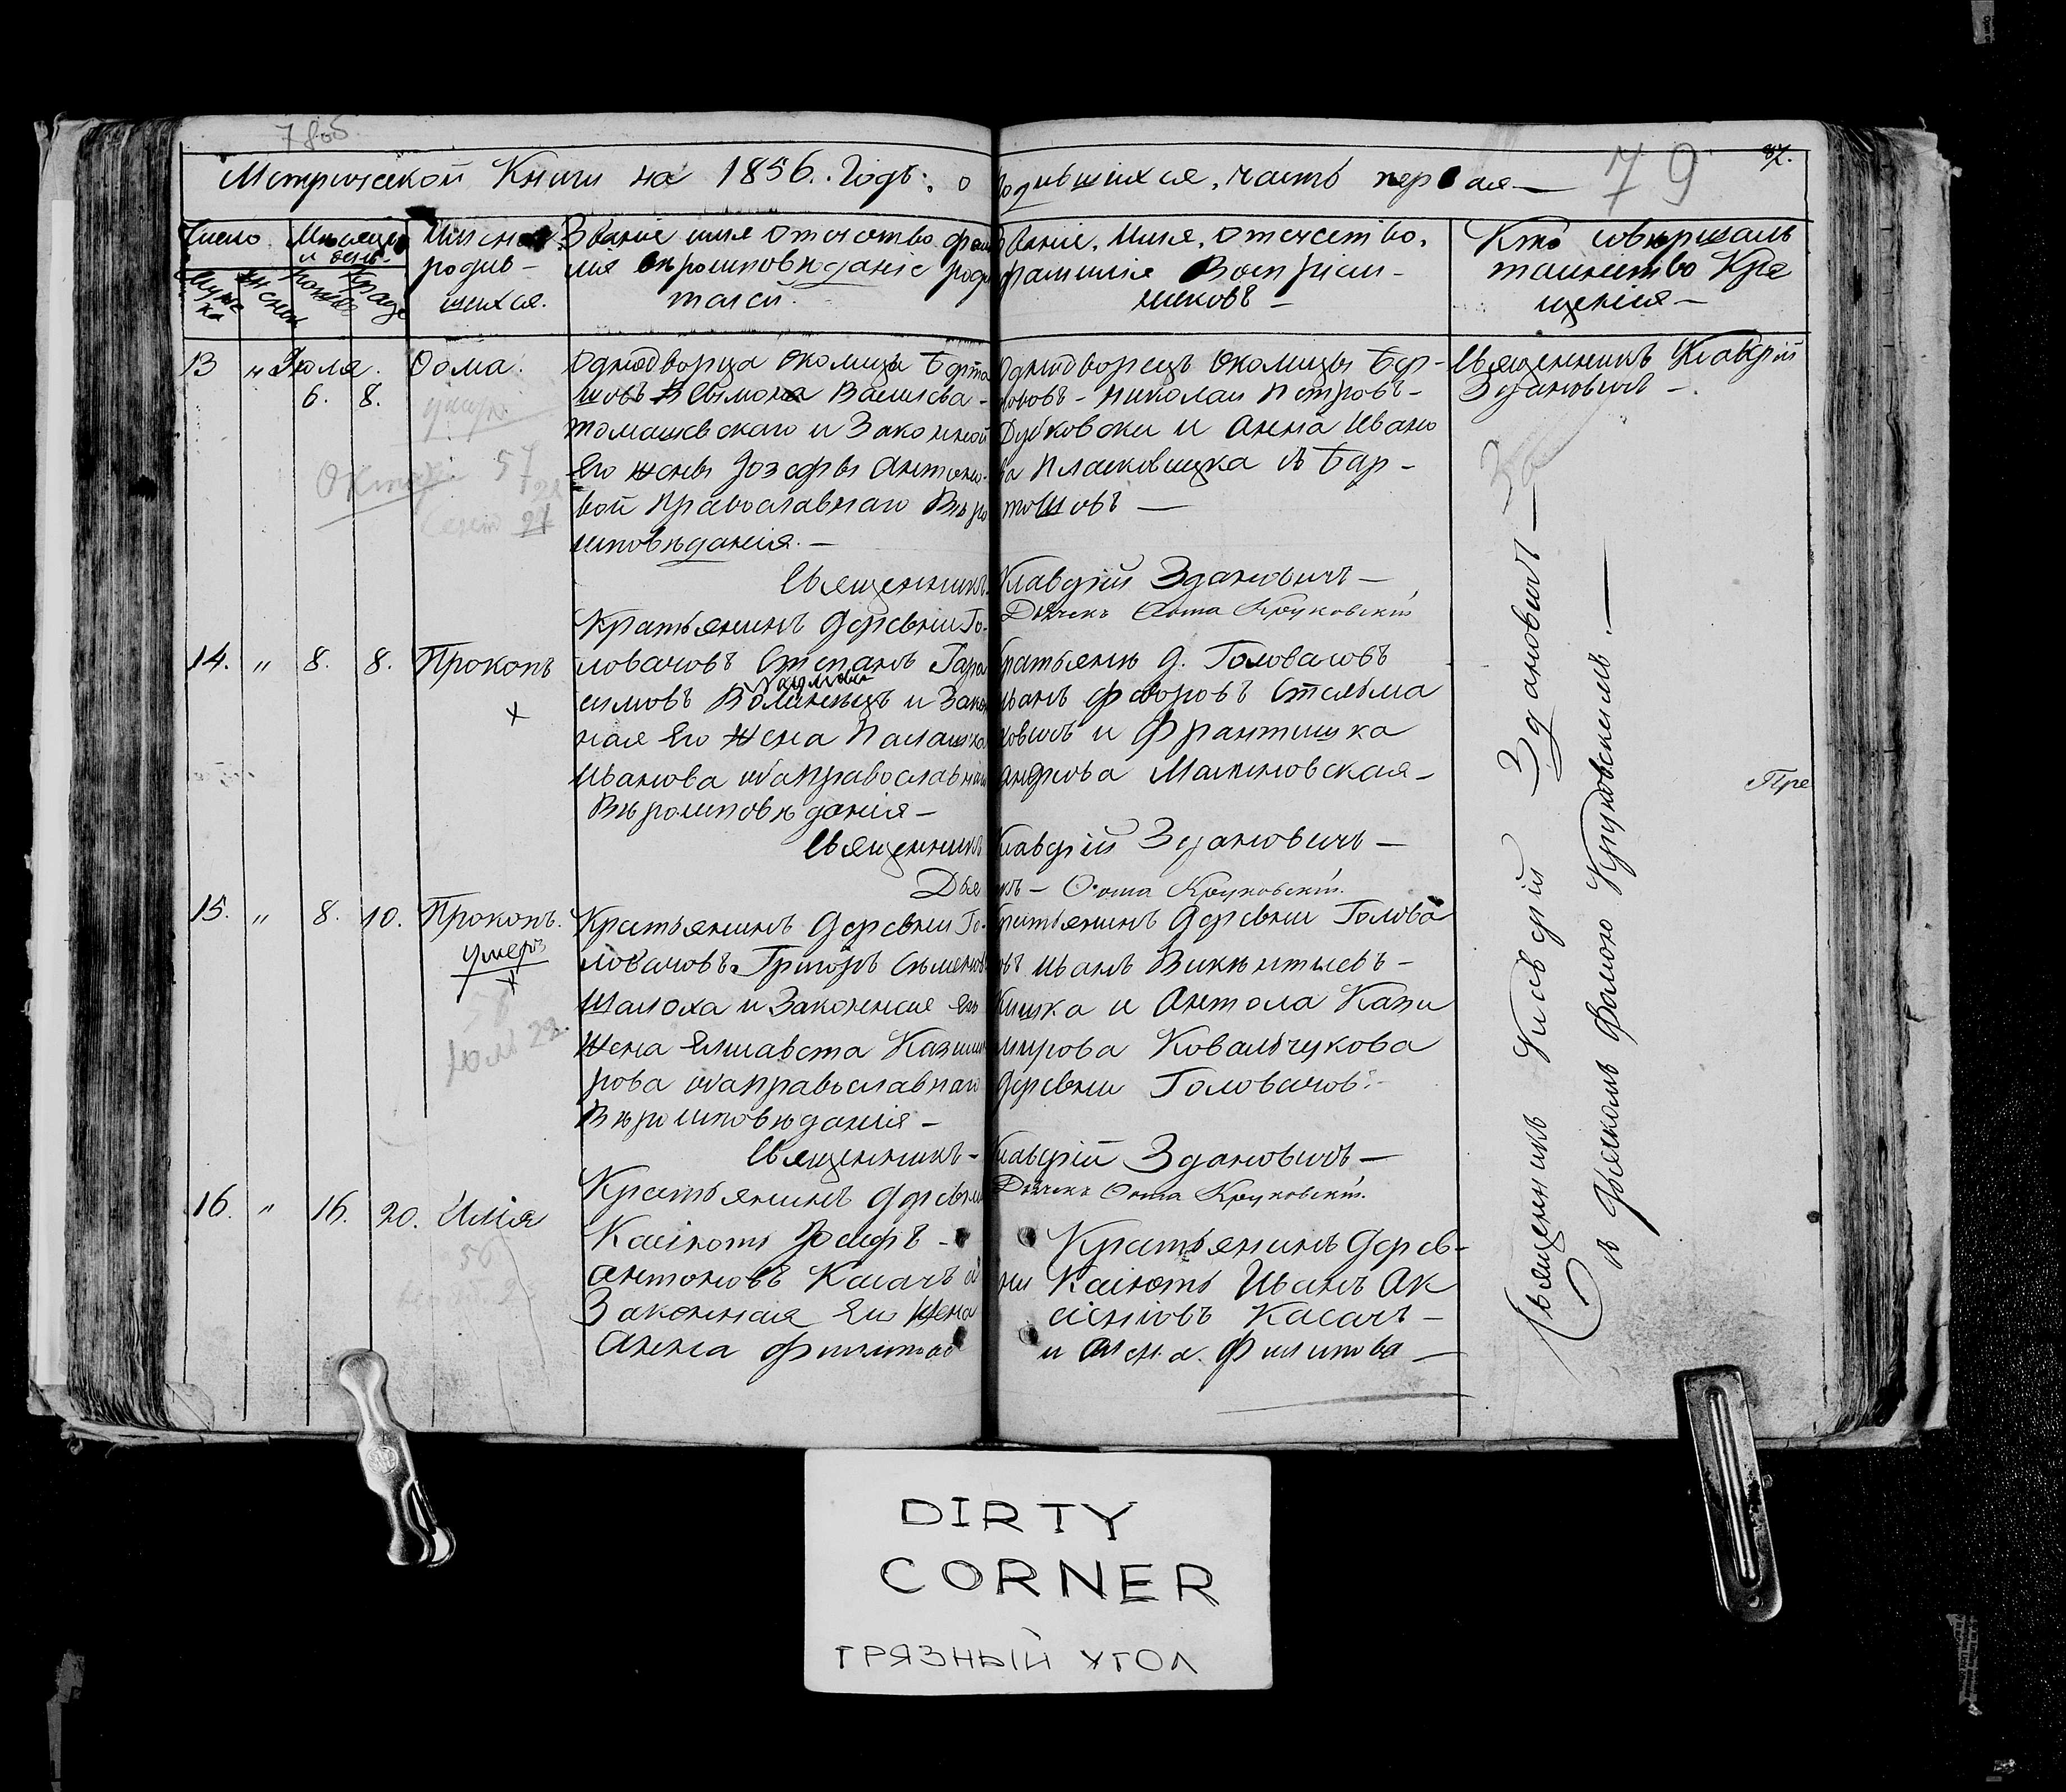 78об
Метрической Книги на 1856. Годъ: о родившихся, часть первая
79
Число
Месяцъ и день
Имена родив-
шихся.
Мужеска
Женска
рожде
Креще
Званіе имя отчество фами
лія вероисповеданіе роди
телей.
Званіе, Имя, отчество,
фамилія Воспріем-
никовъ —
Кто совершалъ
таинство Кре
щенія —
13 " Июля.
6. 8.
Ѳома.
умеръ
57
Однодворца Околицы Барто
шовъ Семіона Васильева -
Томашевскаго и Законной
Его жены Іозефы Антоно-
вой Православнаго Веро
исповеданія. —
Однодворецъ Околицы Бар-
Николай Петровъ -
Дубковски и Анна Ивано
ва въ Бар-
тошовъ —
Священникъ Клавдій
Здановичъ —
Священникъ Клавдій Зданович —
Дьячекъ Ѳома Круковскій
14. " 8. 8. Прокопъ
Крестьянинъ деревни Го-
ловачовъ Степанъ Гара
симовъ и Закон
ная Его жена Палашка
Иванова оба православнаго
Вероисповеданія —
Крестьянинъ д. Головачовъ
Иванъ Федоровъ Стельма
ховичъ и Франтишка
Андреева Малиновская —
Священникъ Клавдій Здановичъ —
Дьячекъ — Ѳома Круковскій.
15. " 8. 10. Прокопъ.
умеръ
Июль 22.
Крестьянинъ деревни Го-
ловачовъ Григоръ Семеновъ
Шалоха и Законная его
жена Елисавета Казими
рова оба православнаго
Вероисповеданія —
Крестьянинъ деревни Голова
човъ Иванъ Викентьевъ —
Кишка и Антоля Кази
мирова Ковальчукова
деревни Головачовъ -
Священникъ - Клавдій Здановичъ —
Дьячекъ Ѳома Круковскій.
16. " 16. 20. Илія
56
Крестьянинъ деревни
Іосифъ -
Антоновъ Касачъ и
Законная Его жена
Анна Филипова
Крестьянинъ дерев-
ни Иванъ Ак
сіоновъ Касачъ —
и Филипова —
Священникъ Клавдій Здановичъ —
съ дьячкомъ Фомою Круковскимъ. —
Пре
DIRTY
CORNER
ГРЯЗНЫЙ УГОЛ